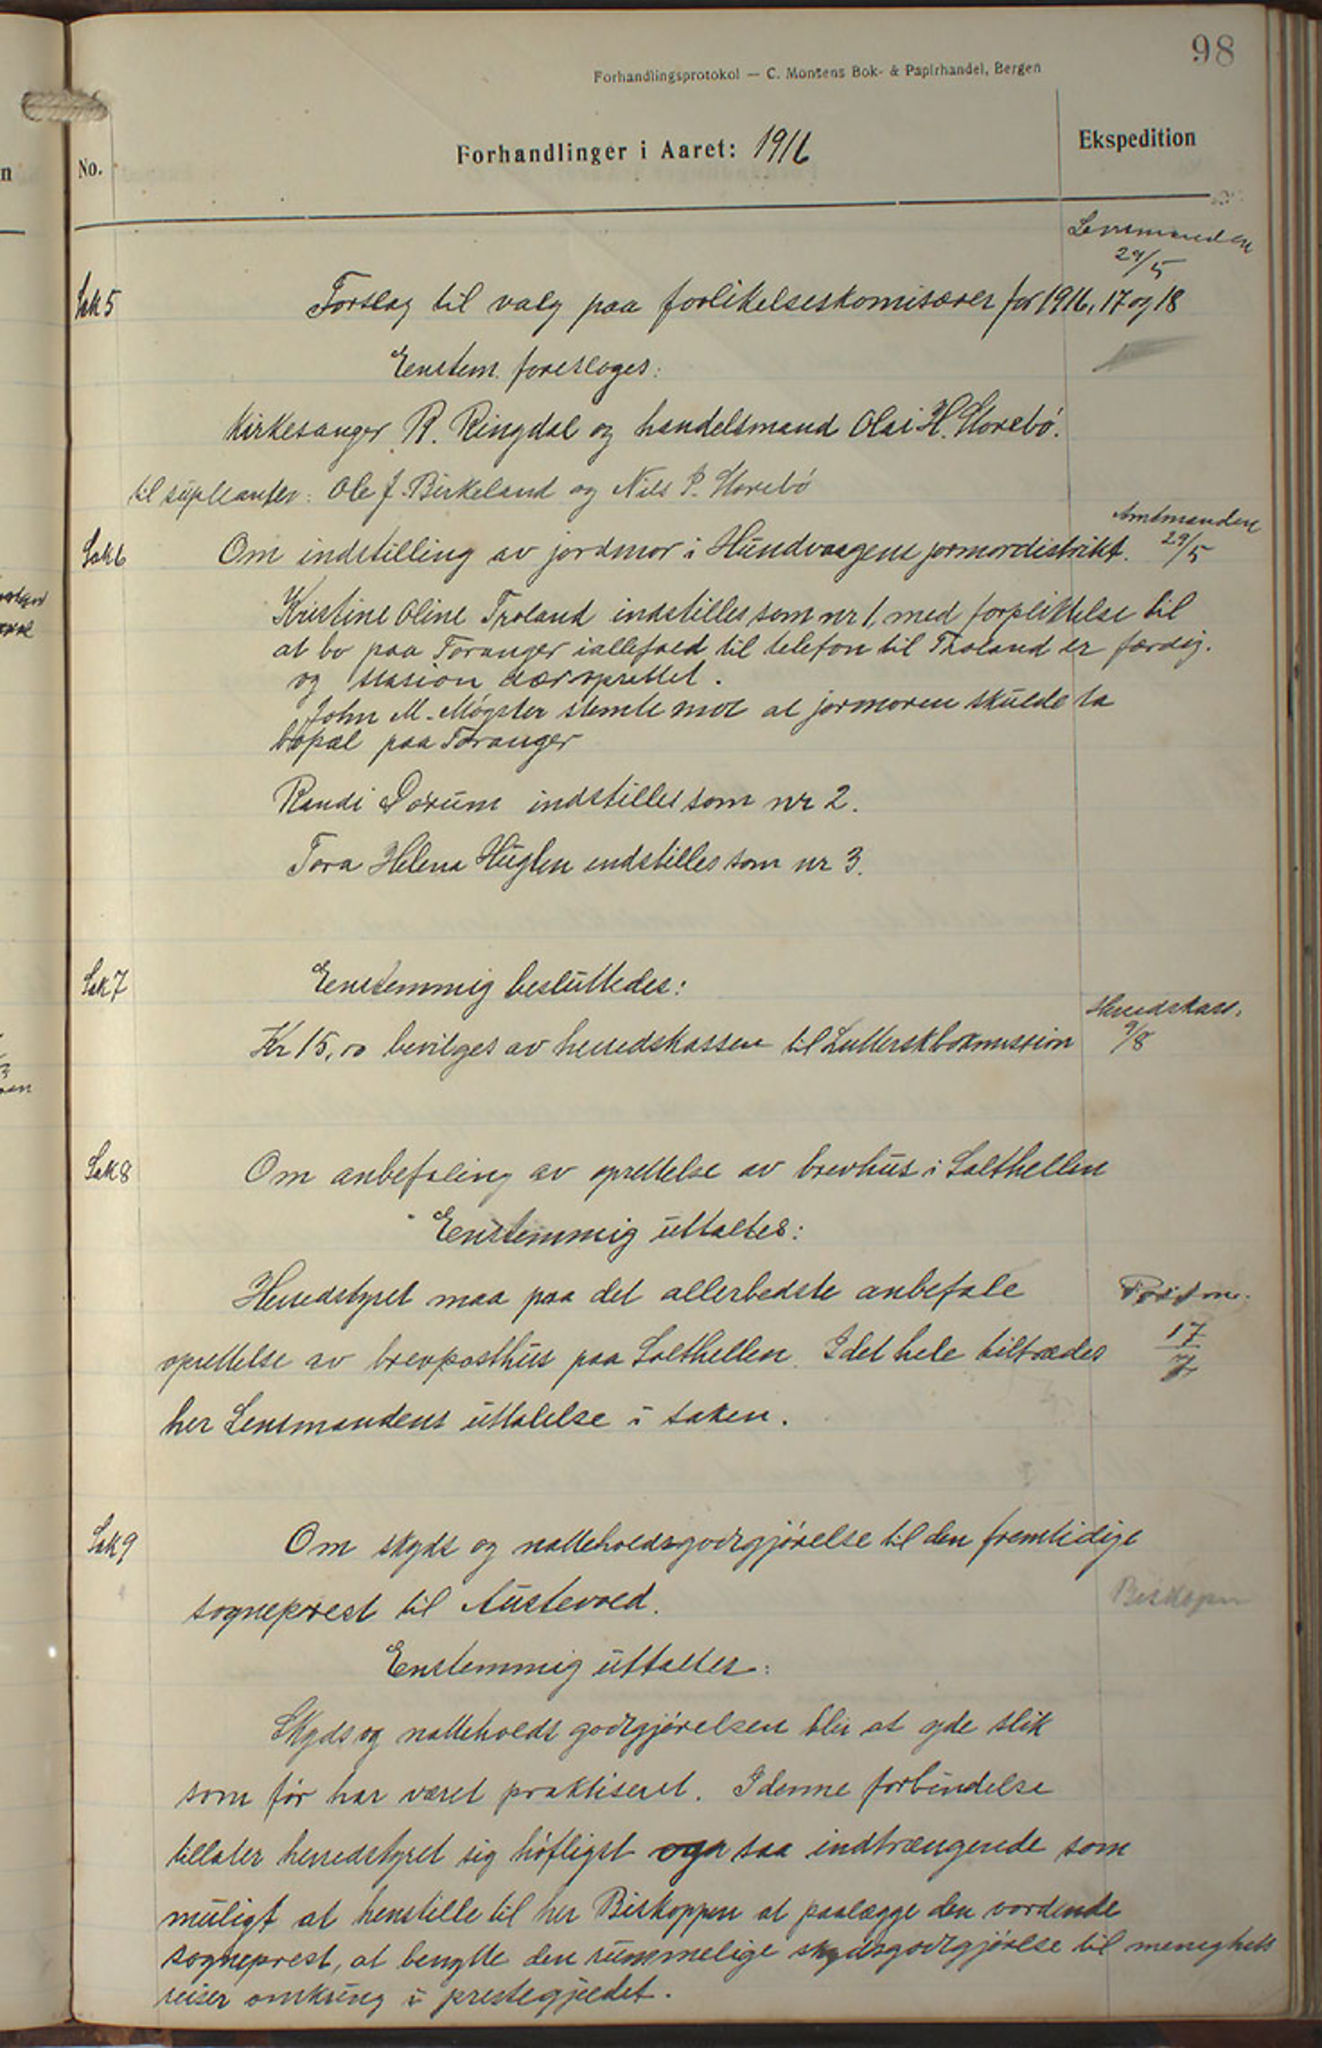 98
Forhandlingsprotokol — C. Monsens Bok- & Papirhandel, Bergen
No.
Forhandlinger i Aaret: 1916
Ekspedition
Lensmanden
29/5
Sak 5
Forslag til valg paa forlikelseskomisærer for 1916, 17 og 18
Eenstem. foresloges:
Kirkesanger R. Ringdal og handelsmand Olai H. Storebö.
til supleanter: Ole J. Birkeland og Nils P. Storebö
Amtmanden
29/5
Sak 6
Om indstilling av jordmor i Hundvaagens jormordistrikt.
Kristine Oline Troland indstilles som nr 1, med forpliktelse til
at bo paa Toranger iallefald til telefon til Troland er færdig.
og stasion der oprettet.
John M. Møgster stemte mot at jormoren skulde ta
bopæl paa Toranger
Randi Dorum indstilles som nr 2.
Tora Helena Huglen indstilles som nr 3.
Sak 7
Eenstemmig besluttedes:
Herredskass.
9/8
Kr 15,00 bevilges av herredskassen til Luthersk bokmission
Sak 8
Om anbefaling av oprettelse av brevhus i Salthellen
Eenstemmig uttaltes:
Herredstyret maa paa det allerbedste anbefale
Postm.
17/7
oprettelse av brevposthus paa Salthellen. I det hele tiltrædes
her Lensmandens uttalelse i saken.
Sak 9
Om skyds og natteholdsgodtgjörelse til den fremtidige
Biskopen
sogneprest til Austevold.
Enstemmig uttaltes:
Skyds og natteholds godtgjörelsen blir at yde slik
som för har været praktiseret. I denne forbindelse
tillater herredstyret sig höfligst saa indtrængende som
muligt at henstille til hr Biskoppen at paalægge den vordende
sogneprest, at benytte den rummelige skydsgodtgjörelse til menigheds
reiser omkring i prestegjeldet.